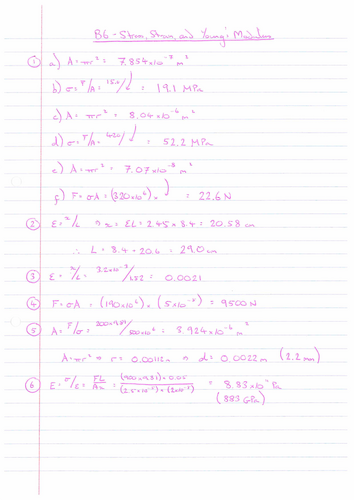 B6 - Stress, Strain, and Young's Modulus
① a) A = πr² = 7.854x10⁻⁷ m²
b) σ = F/A = 15/ = 19.1 MPa
c) A = πr² = 8.04x10⁻⁶ m²
d) σ = F/A = 420/ = 52.2 MPa
e) A = πr² = 7.07x10⁻⁸ m²
f) F = σA = (320x10⁶)x = 22.6 N
② ε = x/L ⇒ x = εL = 2.45 x 8.4 = 20.58 cm
∴ L = 8.4 + 20.6 = 29.0 cm
③ ε = x/L = 3.2x10⁻³/1.52 = 0.0021
④ F = σA = (190x10⁶) x (5x10⁻⁵) = 9500 N
⑤ A = F/σ = 200x9.81/500x10⁶ = 3.924x10⁻⁶ m²
A = πr² ⇒ r = 0.00112 m ⇒ d = 0.0022 m (2.2 mm)
⑥ E = σ/ε = FL/Ax = (900x9.81) x 0.05 / = 8.83x10¹¹ Pa
(883 GPa)